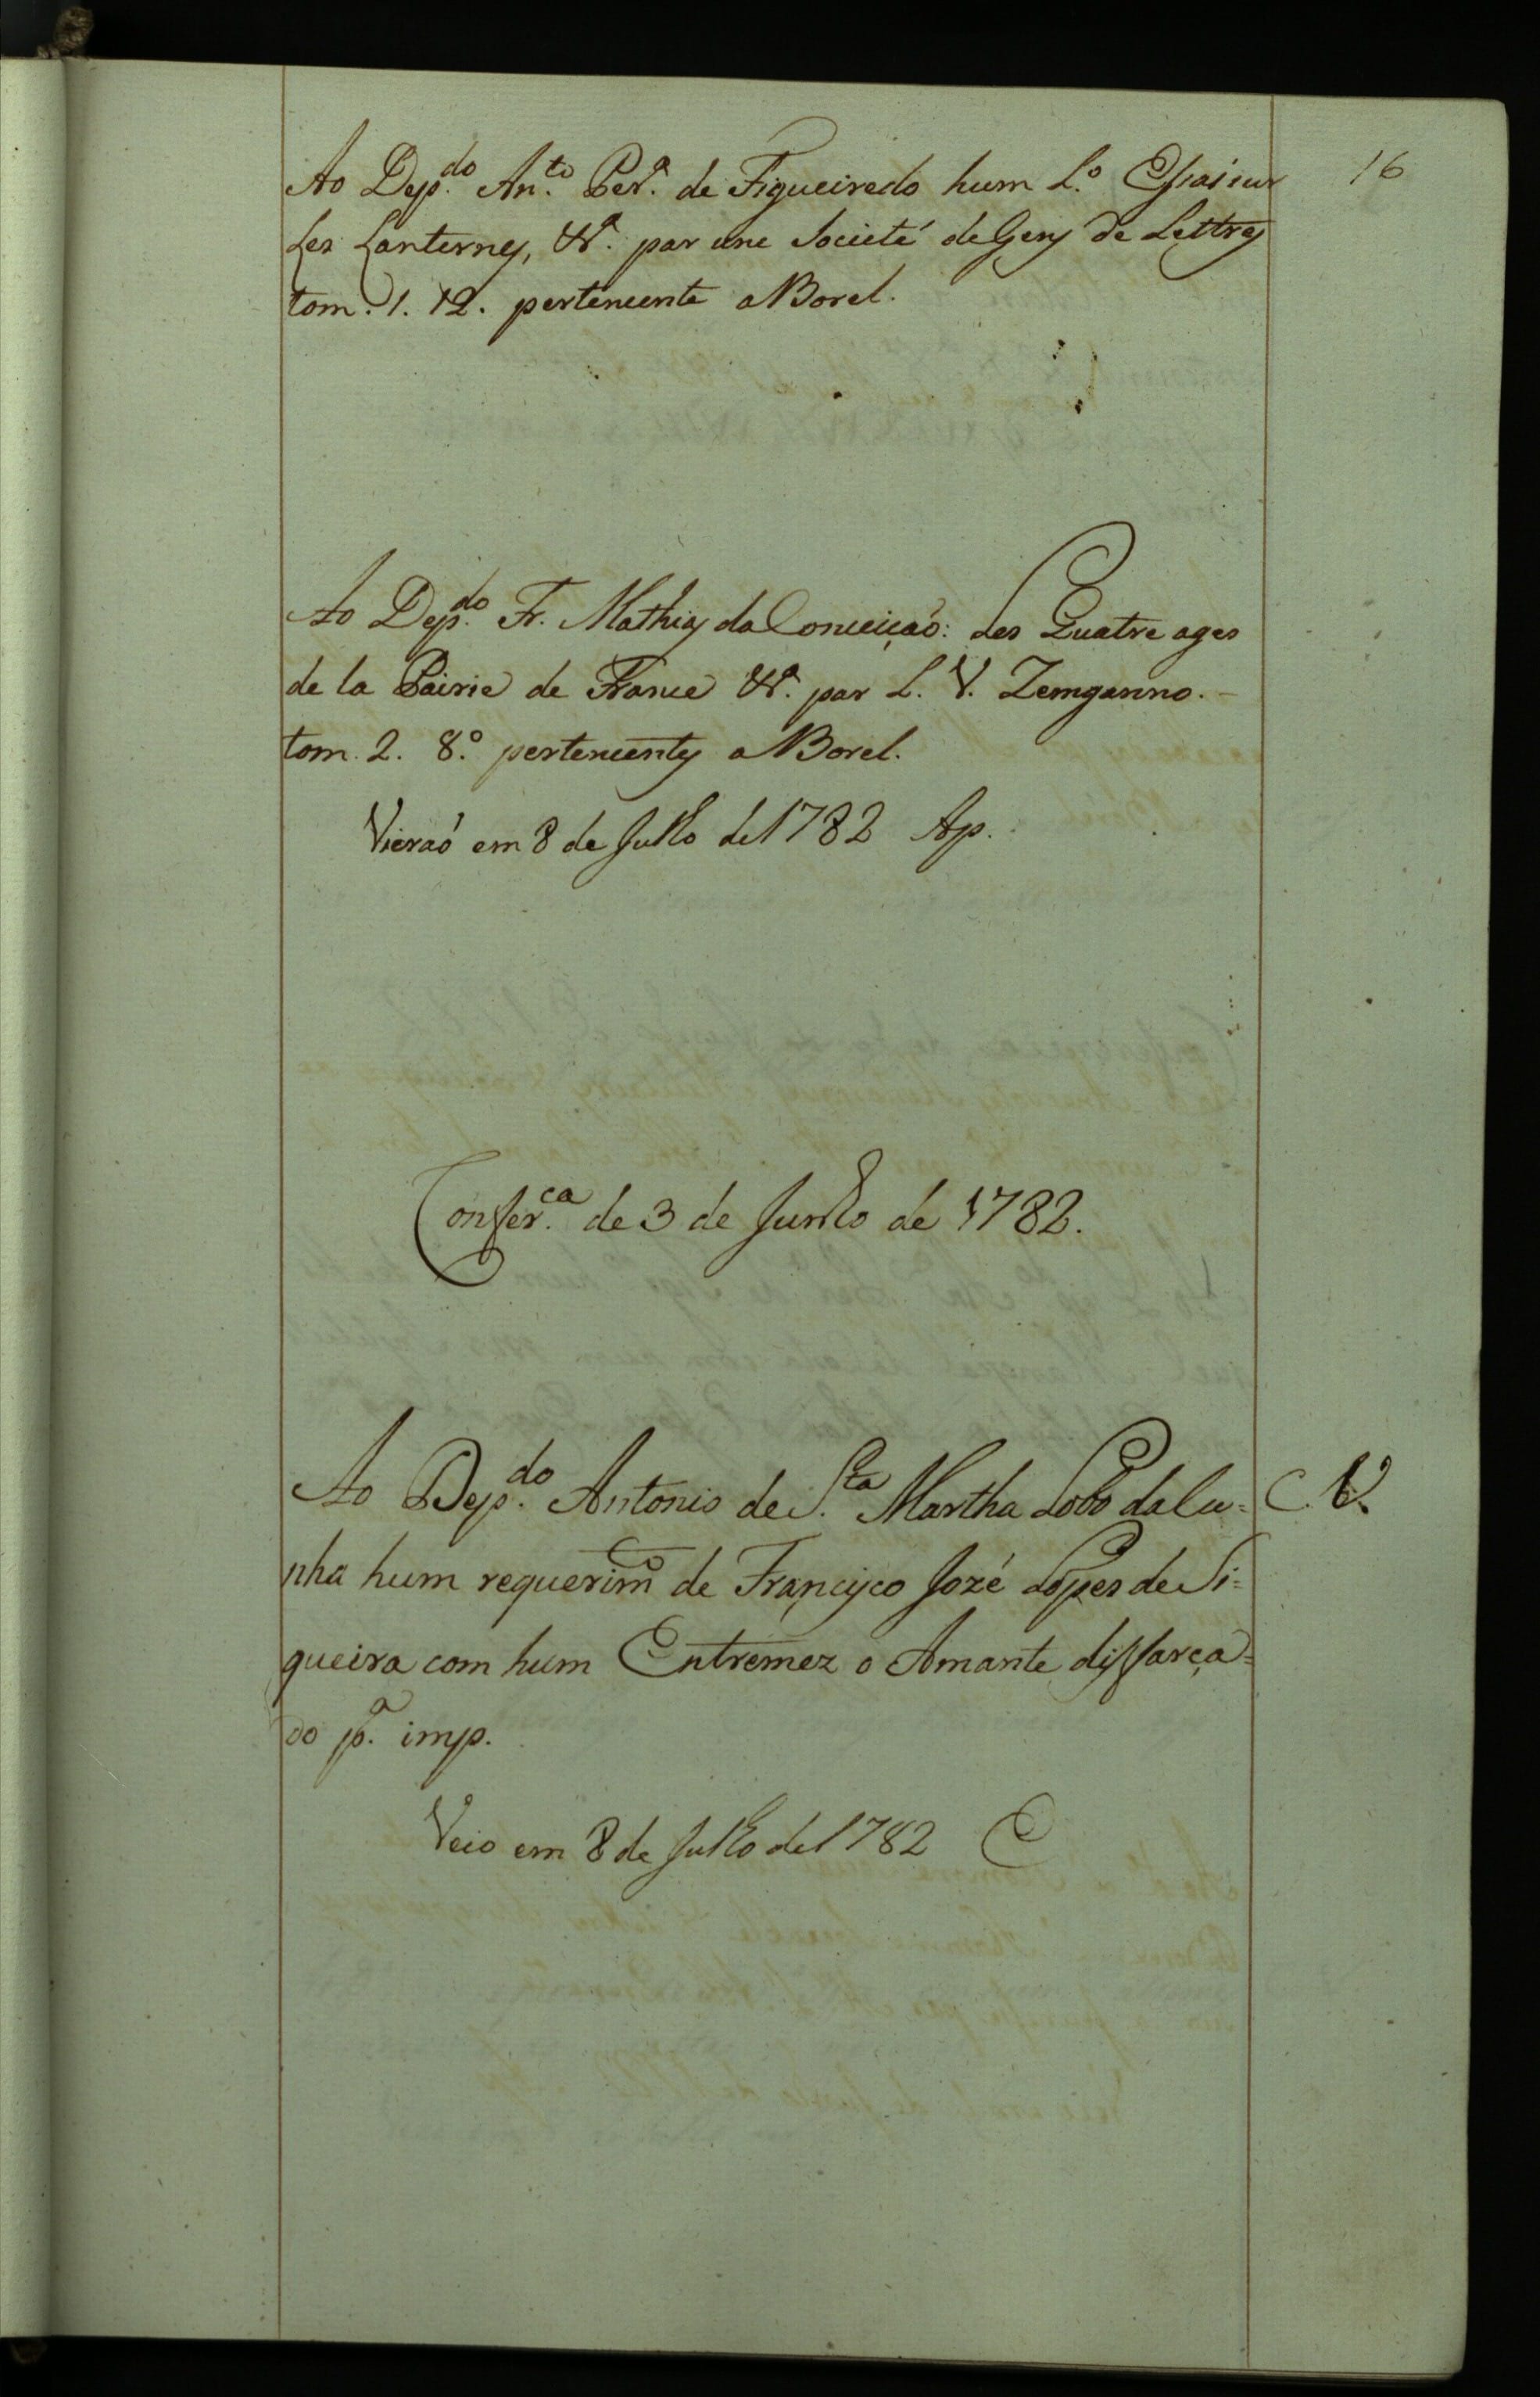 16
Ao Dep.do An.to Per.a de Figueiredo hum L.o Essai sur
Les Lanternes, &.a par une Societé de Gens de Lettres
tom. 1. 12. pertencente a Borel.
Ao Dep.do Fr. Mathias da Conceição: Les Quatre ages
de la Pairie de France &.a par L. V. Zemganno.
tom. 2. 8.o pertencentes a Borel.
Vierão em 8 de Julho de 1782 Ap.
Confer.ca de 3 de Junho de 1782.
Ao Dep.do Antonio de S.ta Martha Lobo da Cu- C. V.
nha hum requerim.o de Francisco Jozé Lopes de Si=
queira com hum Entremez o Amante disfarça=
do p.a imp.
Veio em 8 de Julho de 1782 E